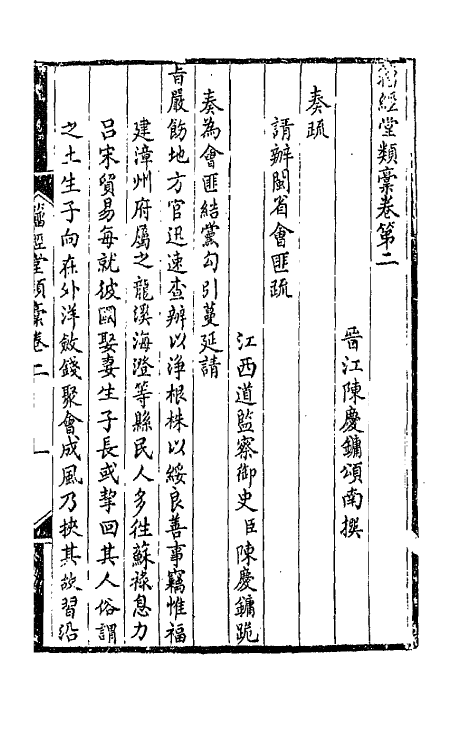 籀經堂類稾卷第二
晉江陳慶鏞頌南撰
奏疏
請辦閩省會匪疏
江西道監察御史臣陳慶鏞跪
奏為會匪結黨勾引蔓延請
旨嚴飭地方官迅速查辦以淨根株以綏良善事竊惟福
建漳州府屬之龍溪海澄等縣民人多往蘇祿息力
呂宋貿易每就彼國娶妻生子長或挈回其人俗謂
之土生子向在外洋斂錢聚會成風乃挾其故習沿
籀經堂類稾卷二
一